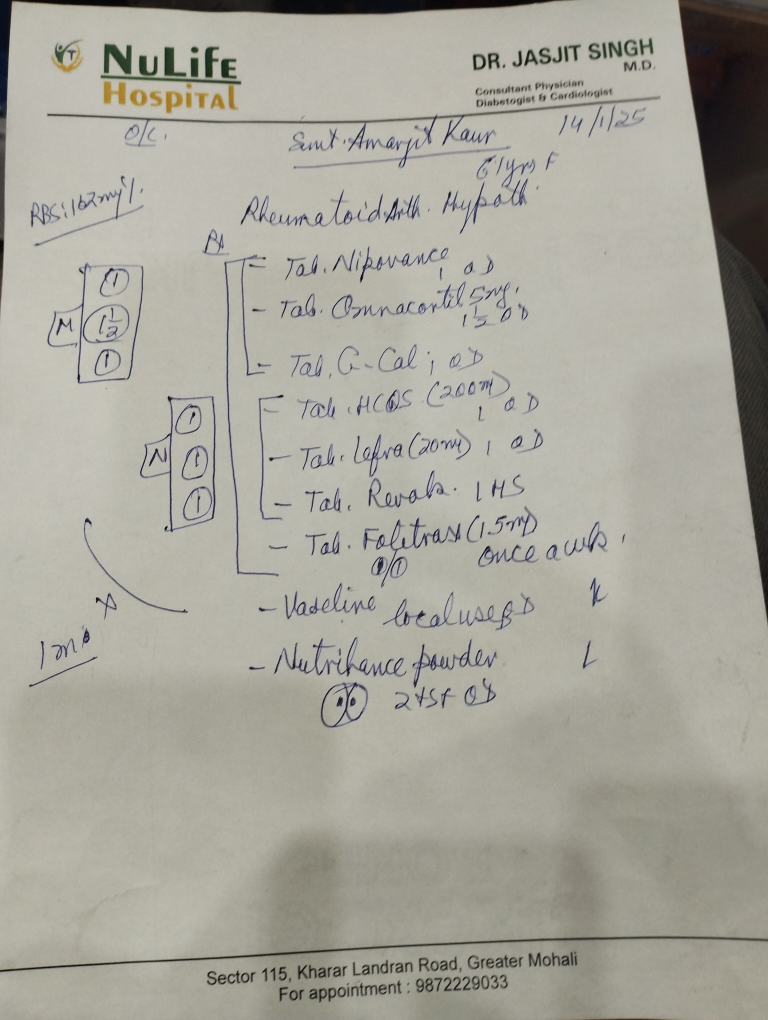 NuLife
Hospital
DR. JASJIT SINGH
M.D.
Consultant Physician
Diabetogist & Cardiologist
O/C.
Smt. Amarjit Kaur
14/1/25
61yrs F
RBS: 162mg%.
Rheumatoid Arth. Hypoth.
Rx
- Tab. Nipovance 1 OD
- Tab. Omnacortil 5mg. 1 1/2 OD
- Tab. G-Cal 1 OD
M
1
1 1/2
1
- Tab. HCQS (200m) 1 OD
- Tab. Lefra (20m) 1 OD
- Tab. Revak. 1 HS
N
1
1
1
- Tab. Folitrax (1.5m)
once a wk.
- Vaseline local use BD
- Nutrihance powder
2 tsf OD
1 mo x
Sector 115, Kharar Landran Road, Greater Mohali
For appointment : 9872229033